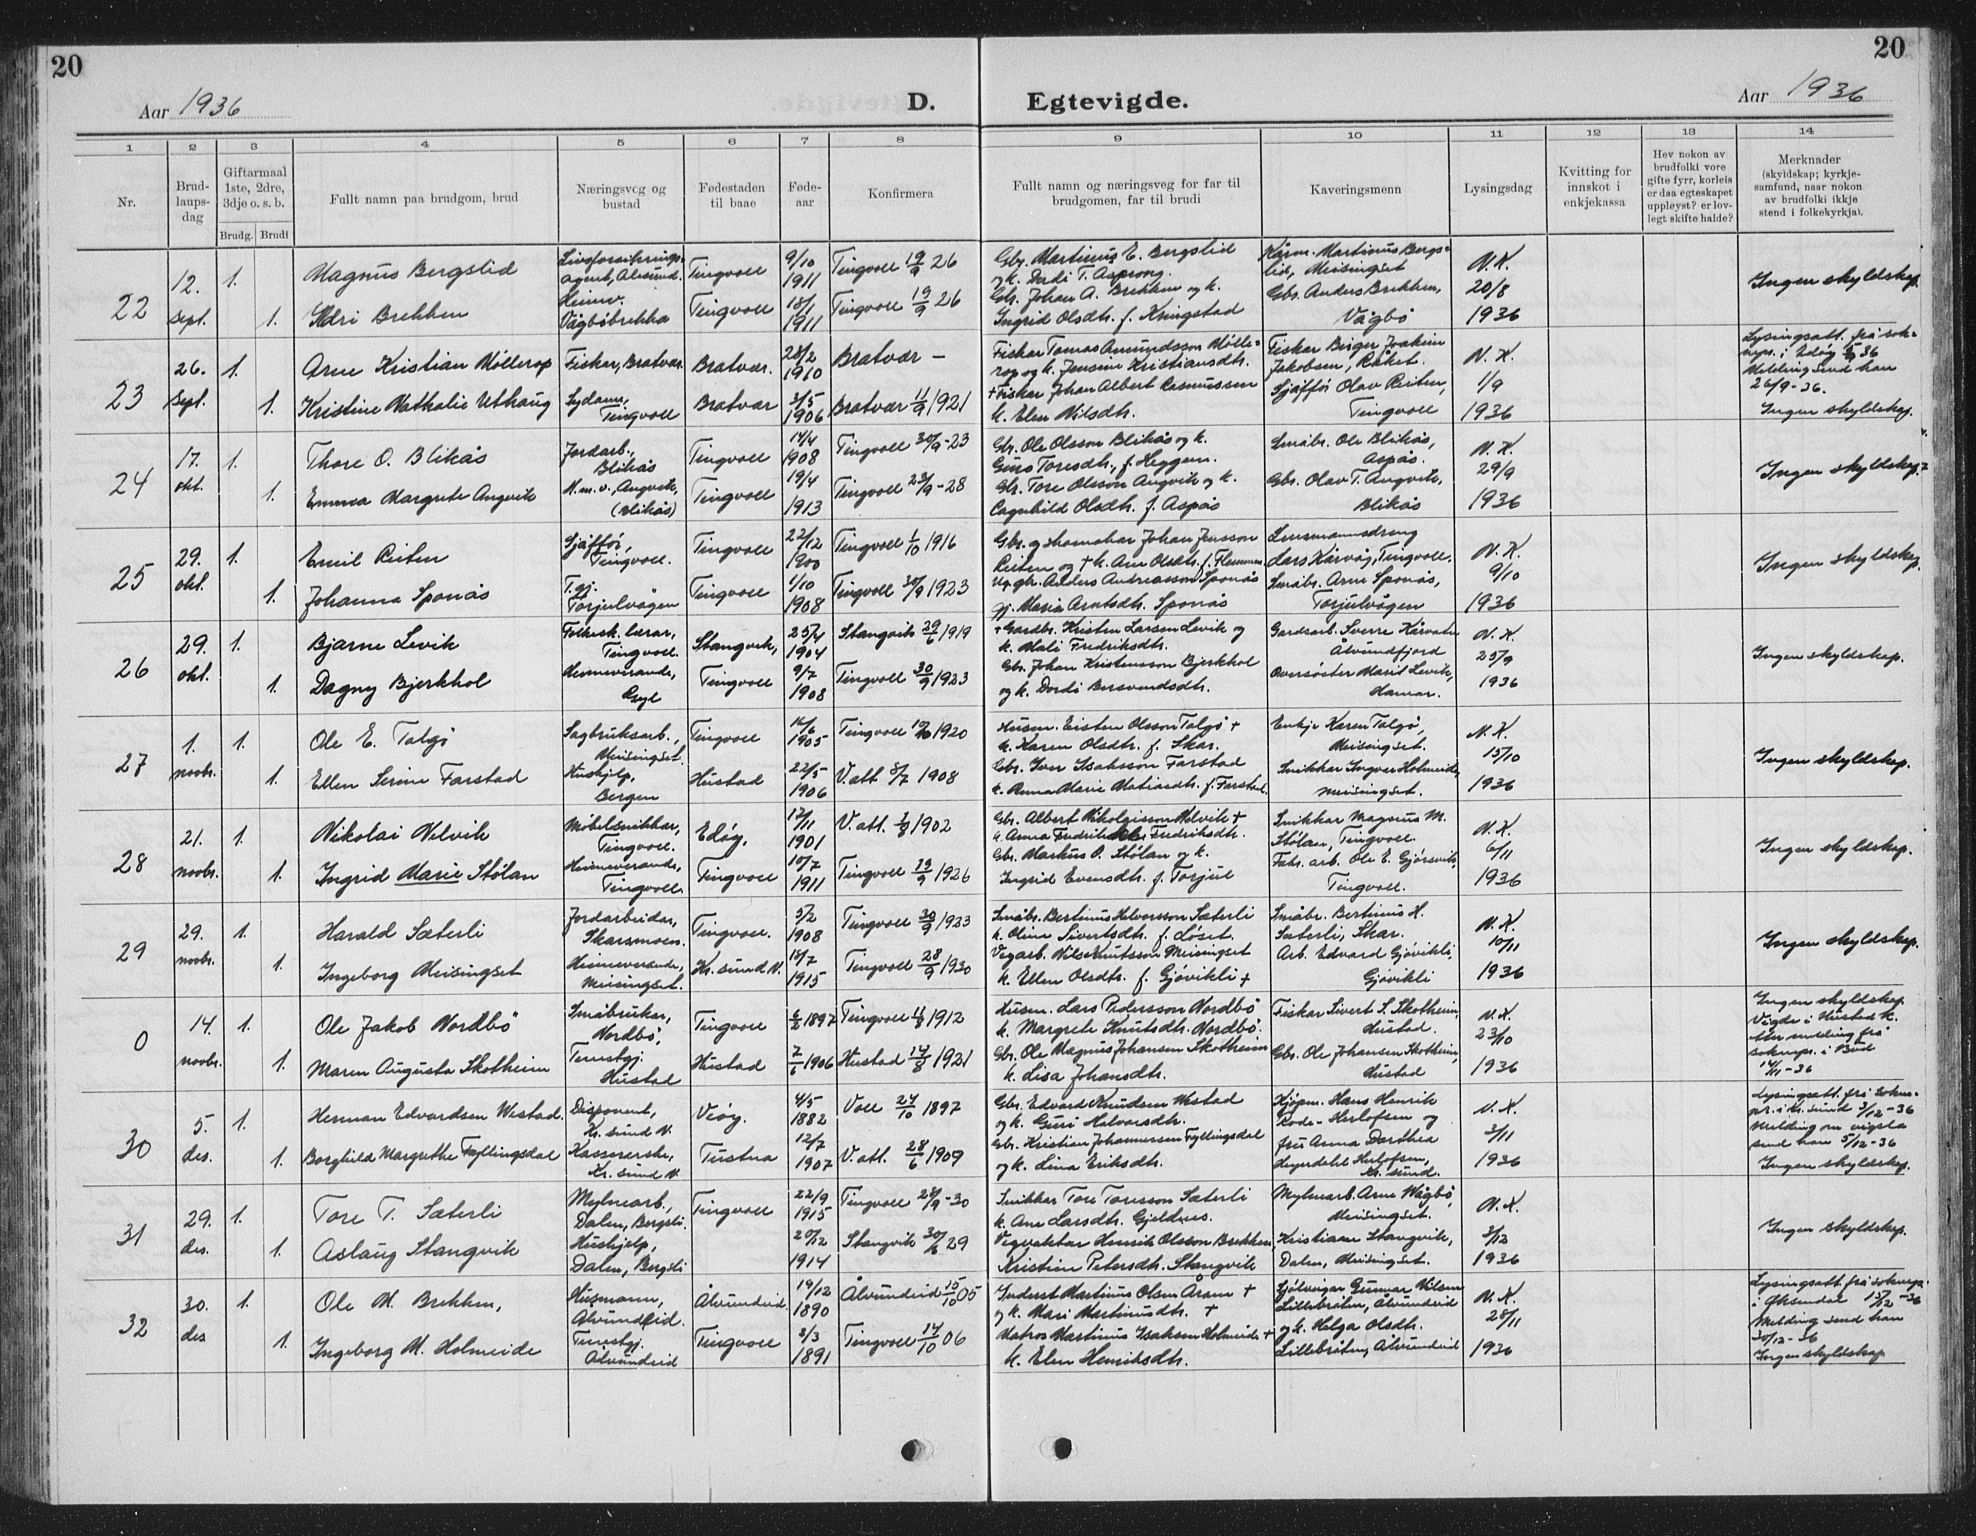 20
20
Aar 1936
D.
Egtevigde.
Aar 1936
1 2 3 4 5 6 7 8 9 10 11 12 13 14
Nr.
Brud-
laups-
dag
Giftarmaal
1ste, 2dre,
3dje o. s. b.
Brudg. Brudi
Fullt namn paa brudgom, brud
Næringsveg og
bustad
Fødestaden
til baae
Føde-
aar
Konfirmera
Fullt namn og næringsveg for far til
brudgomen, far til brudi
Kaveringsmenn
Lysingsdag
Kvitting for
innskot i
enkjekassa
Hev nokon av
brudfolki vore
gifte fyrr, korleis
er daa egteskapet
uppløyst? er lov-
legt skifte halde?
Merknader
(skyldskap; kyrkje-
samfund, naar nokon
av brudfolki ikkje
stend i folkekyrkja).
22
12.
sept.
1.
Magnus Bergslid
Livsforsikrings-
agent, Ålesund.
Tingvoll
9/10
1911
Tingvoll 19/9 26
Gbr. Martinus E. Bergslid
og k. Dordi T. Asprong.
Kårm. Martinus Bergs-
lid, Meisingset
N.K.
20/8
1936
Ingen skyldskap.
1.
Brekken
Heimev.
Vågbøbrekka
Tingvoll
18/1
1911
Tingvoll 19/9 26
Gbr. Johan A. Brekken og k.
Ingrid Olsdtr. f. Kringstad
Gbr. Anders Brekken,
Vågbø
23
26.
sept.
1.
Arne Kristian Møllerop
Fiskar, Bratvær.
Bratvær.
28/2
1910
Bratvær –
Fiskar Tomas Amundsson Mølle-
rop og k. Jensine Kristiansdtr.
Fiskar Birger Joakim
Jakobsen, Råket.
N.K.
1/9
1936
Lysingsatt. frå sok-
nepr. i Edøy
Melding send han
26/9-36.
Ingen skyldskap.
1.
Kristine Nathalie Uthaug
Sydame,
Tingvoll
Bratvær
3/5
1906
Bratvær 11/9 1921
+ Fiskar Johan Albert Rasmussen
k. Elen Nilsdtr.
Sjåffør Olav Reiten,
Tingvoll
24
17.
okt.
1.
Thore O. Blikås
Jordarb.,
Blikås
Tingvoll
14/4
1908
Tingvoll 30/9-23
Gbr. Ole Olsson Blikås og k.
Guro Toresdtr., f. Heggem.
Småbr. Ole Blikås,
Aspås.
N.K.
29/9
1936
Ingen skyldskap.
1.
Emma Margrete Angvik
H.m.v., Angvik,
(Blikås)
Tingvoll
19/4
1913
Tingvoll 23/9-28
Gbr. Tore Olsson Angvik og k.
Ragnhild Olsdtr. f. Aspås
Gbr. Olav T. Angvik,
Blikås
25
29.
okt.
1.
Emil Reiten
Sjåffør,
Tingvoll.
Tingvoll
22/12
1900
Tingvoll 1/10 1916
Gbr. og skomakar Johan Jensson
Reiten og + k. Ane Olsdtr. f. Flemmen
Lensmannsdreng
Lars Kårvåg, Tingvoll.
N.K.
9/10
1936
Ingen skyldskap.
1.
Johanna Sponås
T.gj.
Torjulvågen
Tingvoll
1/10
1908
Tingvoll 30/9 1923
Ug. gk. Anders Andreasson Sponås
gj. Maria Arntsdtr. Sponås
Småbr. Arne Sponås,
Torjulvågen
26
29.
okt.
1.
Bjarne Levik
Folkesk. lærar,
Tingvoll.
Stangvik,
25/4
1904
Stangvik 29/6 1919
+ Gardbr. Kristen Larsen Levik og
k. Mali Fredriksdtr.
Gardsarb. Sverre Kårvatn
Ålvundfjord
N.K.
25/9
1936
Ingen skyldskap.
1.
Dagny Bjerkhol
Heimeverande,
Gyl
Tingvoll
9/7
1908
Tingvoll 30/9 1923
Gbr. Johan Kristensson Bjerkhol
og k. Dordi Bersvendsdtr.
Oversøster Marit Levik,
Hamar.
27
1.
novbr.
1.
Ole E. Talgø
Sagbruksarb.,
Meisingset.
Tingvoll
16/6
1905
Tingvoll 10/10 1920
Husm. Eisten Olsson Talgø +
k. Karen Olsdtr. f. Skar.
Enkje Karen Talgø,
Meisingset.
N.K.
15/10
1936
Ingen skyldskap.
1.
Ellen Serine Farstad
Hushjelp,
Bergen
Hustad
22/5
1906
V.att. 8/7 1908
Gbr. Iver Isaksson Farstad
k. Anna Marie Matiasdtr. f. Farstad.
Snikkar Ingvar Holmeide,
Meisingset.
28
21.
novbr.
1.
Nikolai Nelvik
Møbelsnikkar,
Tingvoll.
Edøy.
12/11
1901
V.att. 3/8 1902
Gbr. Albert Nikolaisson Nelvik +
k. Anna Fredrikke Fredriksdtr.
Snikkar Magnus M.
Stølan, Tingvoll.
N.K.
6/11
1936
Ingen skyldskap.
1.
Ingrid Marie Stølan
Heimeverande,
Tingvoll.
Tingvoll
10/7
1911
Tingvoll 19/9 1926
Gbr. Markus O. Stølan og k.
Ingrid Evensdtr. f. Torjul
Fabr. arb. Ole E. Gjørsvik,
Tingvoll.
29
29.
novbr.
1.
Harald Sæterli
Jordarbeidar,
Skarsmoen.
Tingvoll.
5/2
1908
Tingvoll 30/9 1923
Småbr. Bertinus Halvorsson Sæterli
k. Oline Sivertsdtr. f. Løset.
Småbr. Bertinus H.
Sæterli, Skar.
N.K.
10/11
1936
Ingen skyldskap.
1.
Ingeborg Meisingset
Heimeverande,
Meisingset.
Kr.sund N.
15/7
1915
Tingvoll 28/9 1930
Vegarb. Nils Knutsson Meisingset
k. Ellen Olsdtr. f. Gjøvikli +
Arb. Edvard Gjøvikli,
Gjøvikli
0
14.
novbr.
1.
Ole Jakob Nordbø
Småbrukar,
Nordbø,
Tingvoll
6/2 1897
Tingvoll 11/8 1912
Husm. Lars Pedersson Nordbø
k. Margrete Knutsdtr. Nordbø.
Fiskar Sivert S. Skotheim,
Hustad.
N.K.
23/10
1936
Ingen skyldskap
Vigde i Hustad k.
etter melding frå
soknepr. i Bud
14/11-36
1.
Maren Augusta Skotheim
Tenestgj.
Hustad
Hustad
7/6 1906
Hustad 14/8 1921
Gbr. Ole Magnus Johansen Skotheim
k. Lisa Johansdtr.
Gbr. Ole Johansen Skotheim,
Hustad
30
5.
des.
1.
Herman Edvardsen Westad.
Disponent,
Kr.sund N.
Veøy.
4/5
1882
Voll 24/10 1897
Gbr. Edvard Knudsen Westad
og k. Guri Halvorsdtr.
Kjøpm. Hans Henrik
Rode-Herlofsen og
N.K.
3/11
1936
Lysingsatt. frå sokne-
pr. i Kr.sund 3/12-36
Melding om vigsla
send han 5/12-36
Ingen skyldskap.
1.
Borghild Margrethe Fyllingsdal
Kassererske,
Kr.sund N.
Tustna
12/7
1907
V.att. 28/6 1909
Gbr. Kristian Johannessen Fyllingsdal
og k. Lina Eriksdtr.
fru Anna Dorthea
Herlofsen,
Kr.sund.
31
29.
des.
1.
Tore T. Sæterli
Mylnearb.,
Dalen, Bergsli.
Tingvoll
22/9
1915
Tingvoll 28/9-30
Snikkar Tore Toresson Sæterli
k. Ane Larsdtr. Gjeldnes.
Mylnarb. Arne Vågbø,
Meisingset.
N.K.
3/12
1936
Ingen skyldskap.
1.
Aslaug Stangvik
Hushjelp,
Dalen, Bergsli
20/12
1914
Stangvik 30/6 29
Vegvaktar Henrik Olsson Brekken
Kristine Petersdtr. Stangvik
Kristiane Stangvik,
Dalen, Meisingset.
32
30.
des
1.
Ole M. Brekken,
Husmann,
Ålvundeid.
Ålvundeid.
19/12
1890
Ålvundeid 15/10 05
Inderst Martinus Olsen Åram +
og k. Mari Martinusdtr. +
Sjølveigar Gunnar Nilsen
Lillebrøten, Ålvundeid
N.K.
28/11
1936
Lysingsatt. frå soknepr.
i Øksendal 15/12-36
Melding send han
30/12-36
Ingen skyldskap
1.
Ingeborg M. Holmeide
Tenestgj.
Ålvundeid
Tingvoll
2/3
1891
Tingvoll 14/10 06
Matros Martinus Isaksen Holmeide +
k. Elen Henriksdtr.
og k. Helga Olsdtr.
Lillebrøten, Ålvundeid